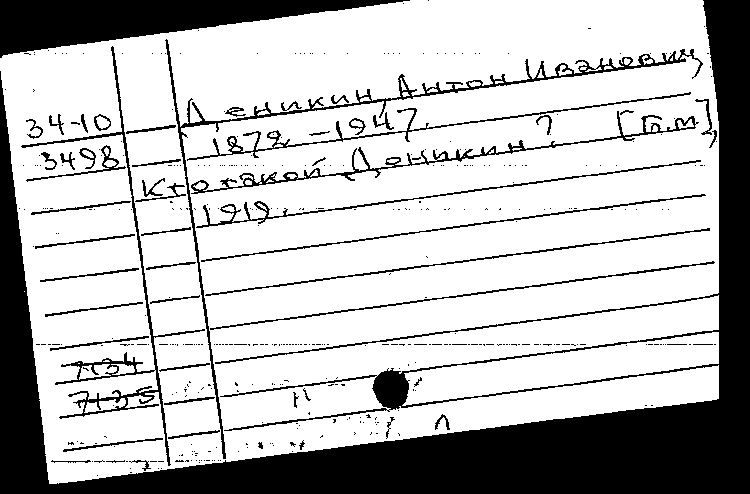 34-10 Деникин, Антон Иванович,
3498 1872 - 1947.
Кто такой Деникин? [Б.м.],
1919.
7134
7135